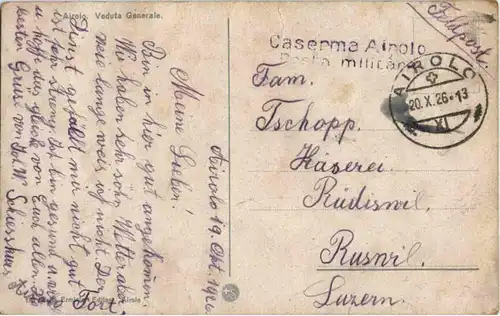 Airolo. Veduta Generale.
Feldpost
Caserma Airolo
Posta militare
AIROLO
20.X.26-13
XI
Fam.
Tschopp
Käserei
Rüdiswil
Ruswil.
Luzern.
Airolo 19. Okt. 1926
Meine Lieben!
Bin in hier gut angekommen.
Wir haben sehr schön Wetter aber
wie lange weis ich nicht Der
Dienst gefällt mir nicht gut
ist sehr streng. Ich bin gesund und
u. hoffe das gleiche von Euch allen. Die
besten Grüsse von
Fort.